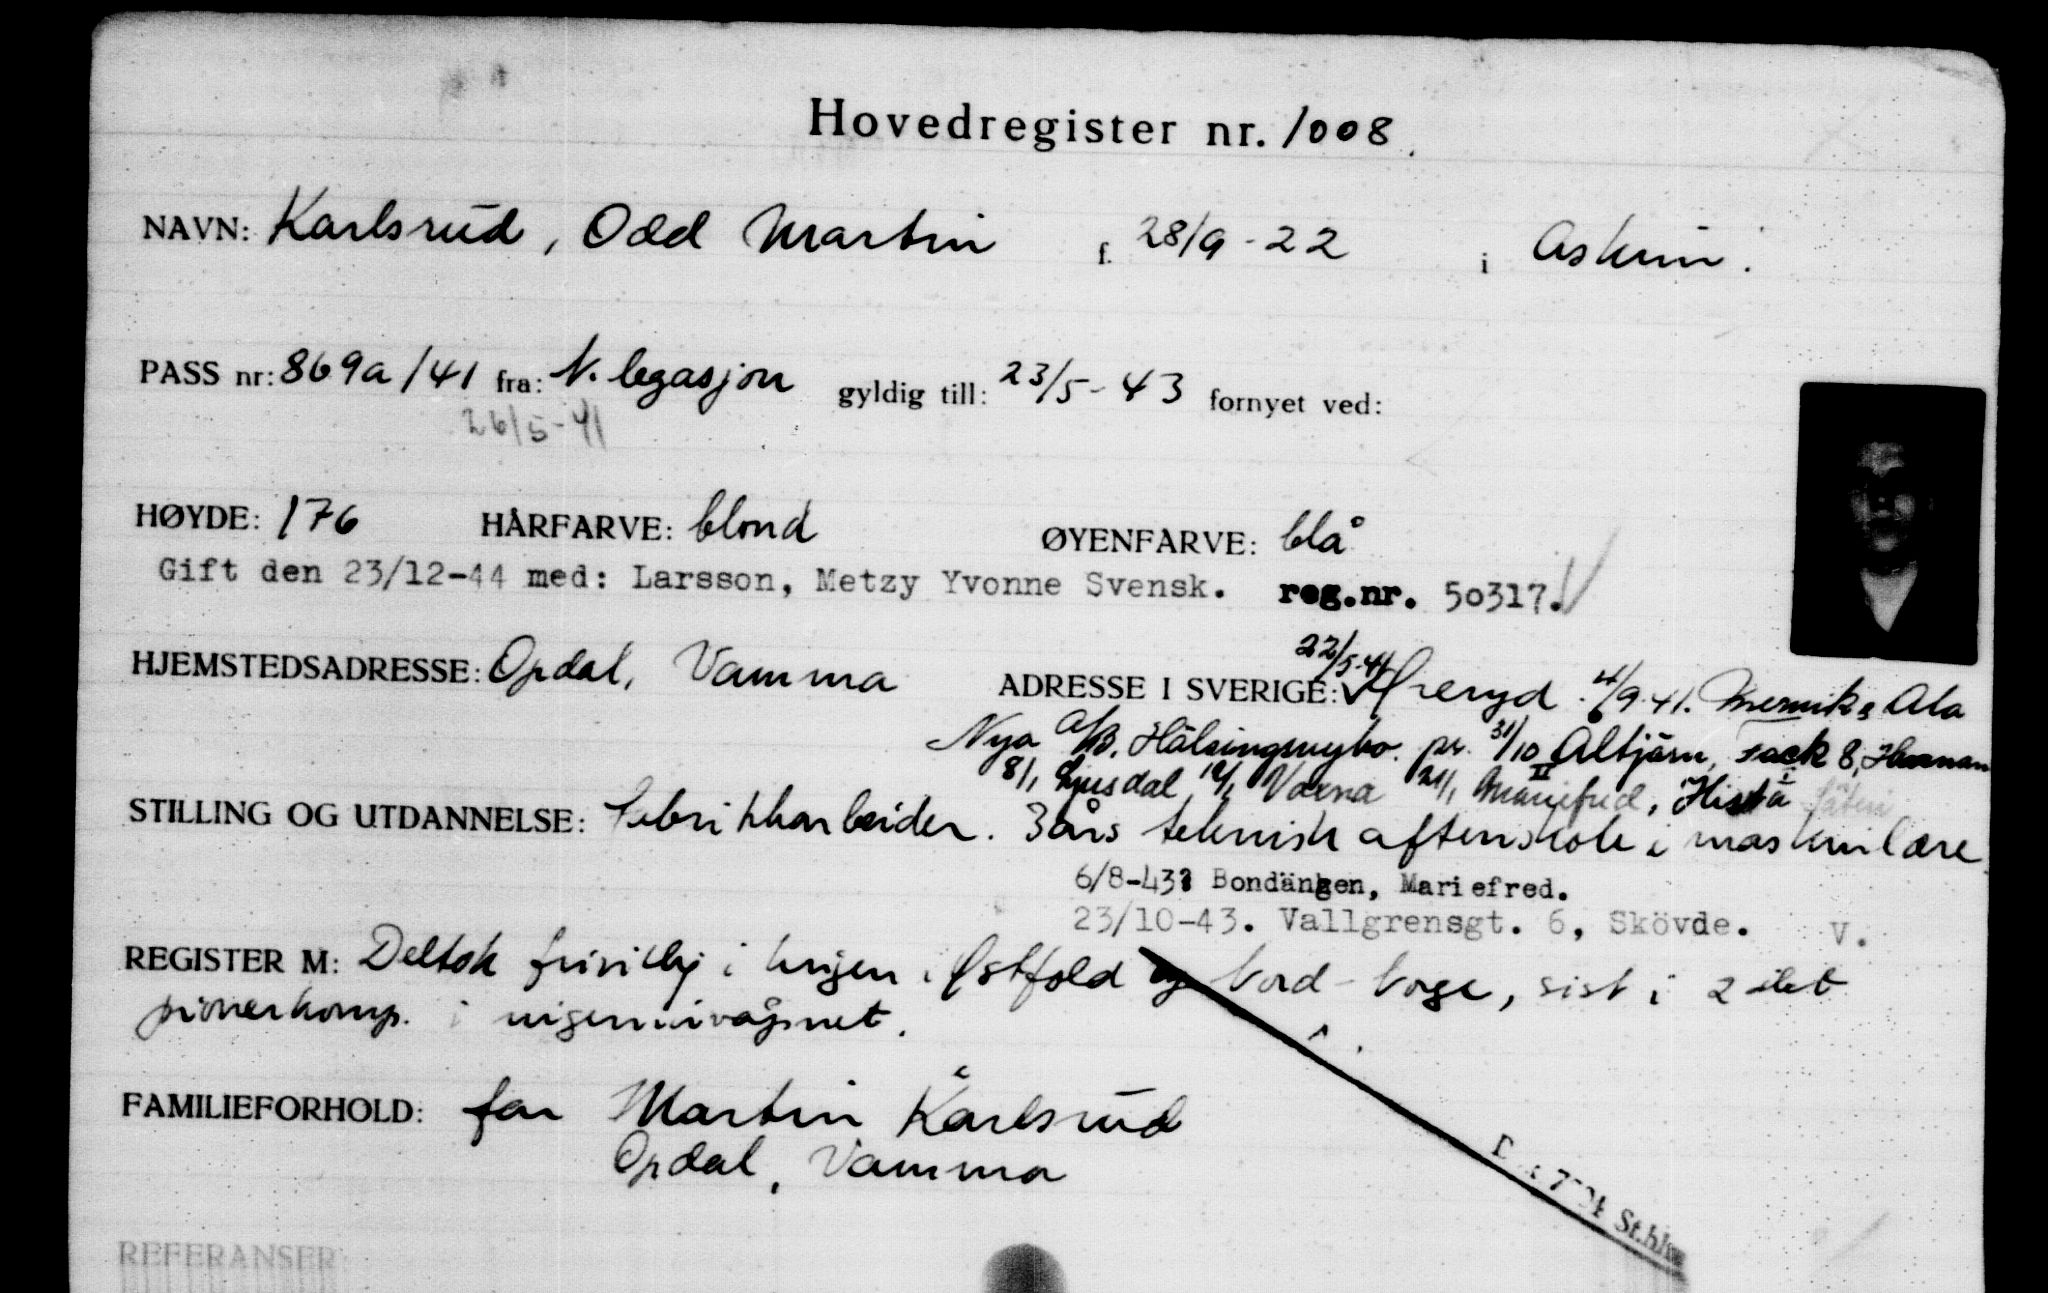 Hovedregister nr. 1008
NAVN: Karlsrud, Odd Martin f. 28/9-22 i Askim.
PASS nr: 869a/41 fra: N. legasjon gyldig till: 23/5-43 fornyet ved:
26/5-41
HØYDE: 176 HÅRFARVE: blond ØYENFARVE: blå
Gift den 23/12-44 med: Larsson, Metzy Yvonne Svensk. reg.nr. 50317.
22/5-41
HJEMSTEDSADRESSE: Opdal, Vamma ADRESSE I SVERIGE: Øreryd 4/9.41. Ala
Nya A/B, 31/10 Åltjärn, Fack 8,
8/1 Ljusdal 21/1 Mariefred, Hista
STILLING OG UTDANNELSE: fabrikkarbeider. 3 års teknisk aftenskole i maskinlære
6/8-43 Bondängen, Mariefred.
23/10-43. Vallgrensgt. 6, Skövde. V.
REGISTER M: Deltok frivillig i krigen i Østfold og sist i 2det
pionerkomp. i ingeniørvåpnet.
FAMILIEFORHOLD: far Martin Karlsrud
Opdal, Vamma
St.hlm
REFERANSER